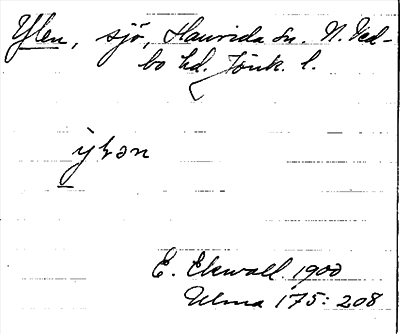 Ylen, sjö, Haurida sn. N. Ved-
bo hd. Jönk. l.
E. Ekwall 1900
Ulma 175:208